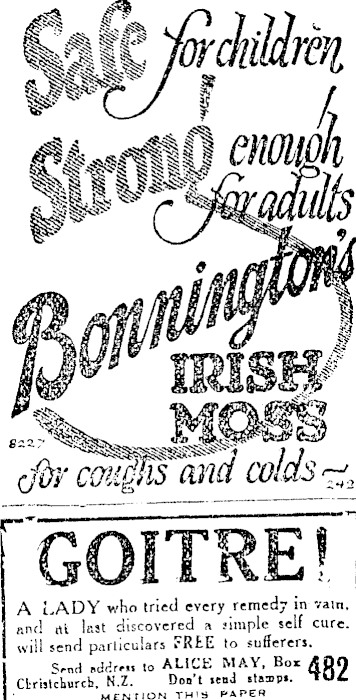 Safe for children
Strong enough
for adults
Bonnington's
IRISH
MOSS
8227
for coughs and colds
242
GOITRE!
A LADY who tried every remedy in vain,
and at last discovered a simple self cure.
will send particulars FREE to sufferers.
Send address to ALICE MAY, Box 482
Christchurch, N.Z. Don't send stamps.
MENTION THIS PAPER